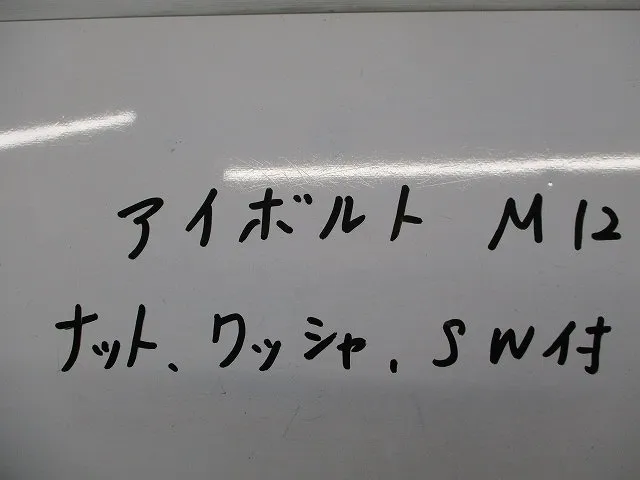 アイボルト M12
ナット、ワッシャ、SW付